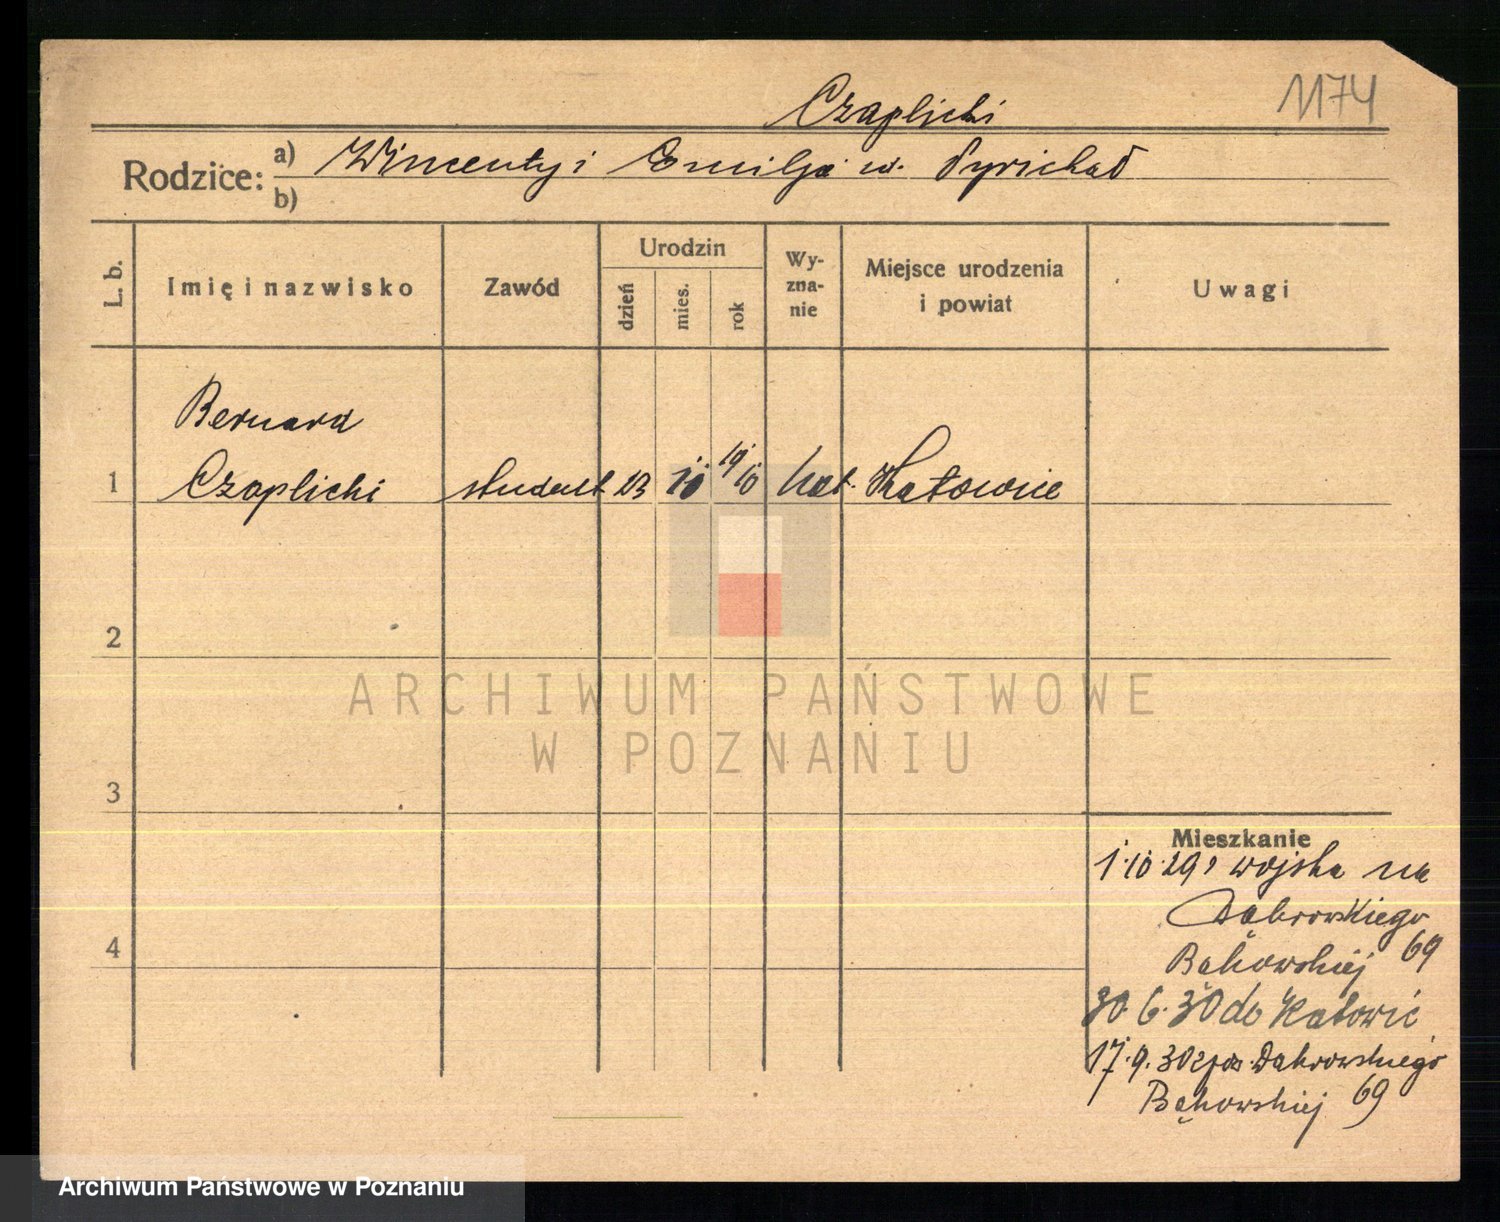 1174
Czaplicki
Rodzice: a) Wincenty i Emilja w.
b)
L. b.
Imię i nazwisko
Zawód
Urodzin
dzień
mies.
rok
Wy-
zna-
nie
Miejsce urodzenia
i powiat
Uwagi
Bernard
1 Czaplicki student 23 10 19 10 kat. Katowice
2
ARCHIWUM PAŃSTWOWE
W POZNANIU
3
4
Mieszkanie
1.10.29 z wojska na
Dąbrowskiego
Bąkowskiej 69
30.6.30 do Katowic
17.9.30 Dąbrowskiego
Bąkowskiej 69
Archiwum Państwowe w Poznaniu